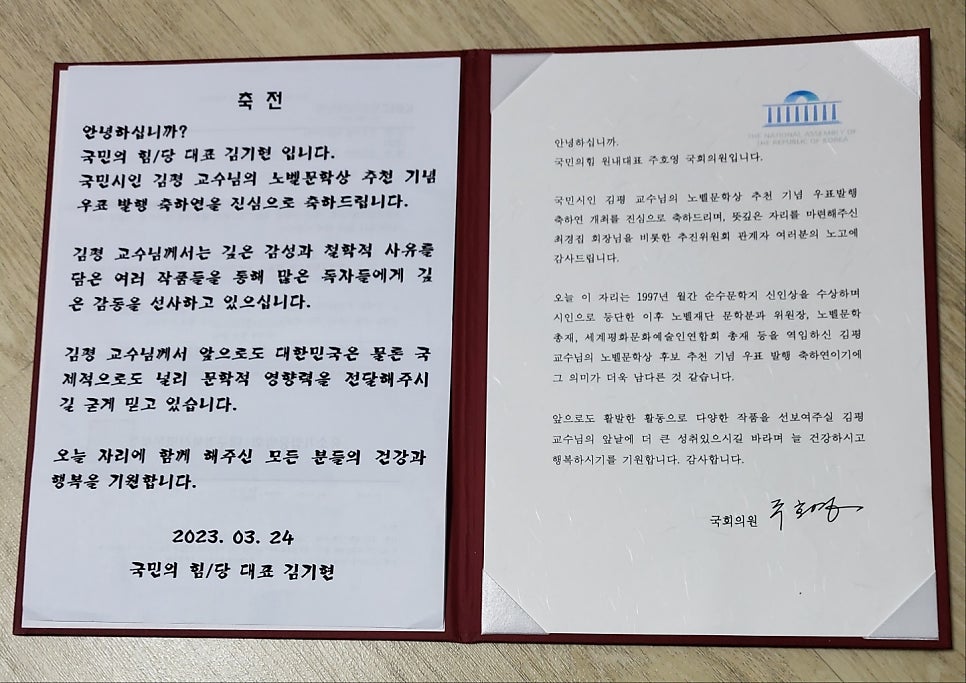 축 전
안녕하십니까?
국민의 힘/당 대표 김기현 입니다.
국민시인 김평 교수님의 노벨문학상 추천 기념
우표 발행 축하연을 진심으로 축하드립니다.
김평 교수님께서는 깊은 감성과 철학적 사유를
담은 여러 작품들을 통해 많은 독자들에게 깊
은 감동을 선사하고 있으십니다.
김평 교수님께서 앞으로도 대한민국은 물론 국
제적으로도 널리 문학적 영향력을 전달해주시
길 굳게 믿고 있습니다.
오늘 자리에 함께 해주신 모든 분들의 건강과
행복을 기원합니다.
2023. 03. 24
국민의 힘/당 대표 김기현
THE NATIONAL ASSEMBLY OF
THE REPUBLIC OF KOREA
안녕하십니까.
국민의힘 원내대표 주호영 국회의원입니다.
국민시인 김평 교수님의 노벨문학상 추천 기념 우표발행
축하연 개최를 진심으로 축하드리며, 뜻깊은 자리를 마련해주신
최경집 회장님을 비롯한 추진위원회 관계자 여러분의 노고에
감사드립니다.
오늘 이 자리는 1997년 월간 순수문학지 신인상을 수상하며
시인으로 등단한 이후 노벨재단 문학분과 위원장, 노벨문학
총재, 세계평화문화예술인연합회 총재 등을 역임하신 김평
교수님의 노벨문학상 후보 추천 기념 우표 발행 축하연이기에
그 의미가 더욱 남다른 것 같습니다.
앞으로도 활발한 활동으로 다양한 작품을 선보여주실 김평
교수님의 앞날에 더 큰 성취있으시길 바라며 늘 건강하시고
행복하시기를 기원합니다. 감사합니다.
국회의원 주호영